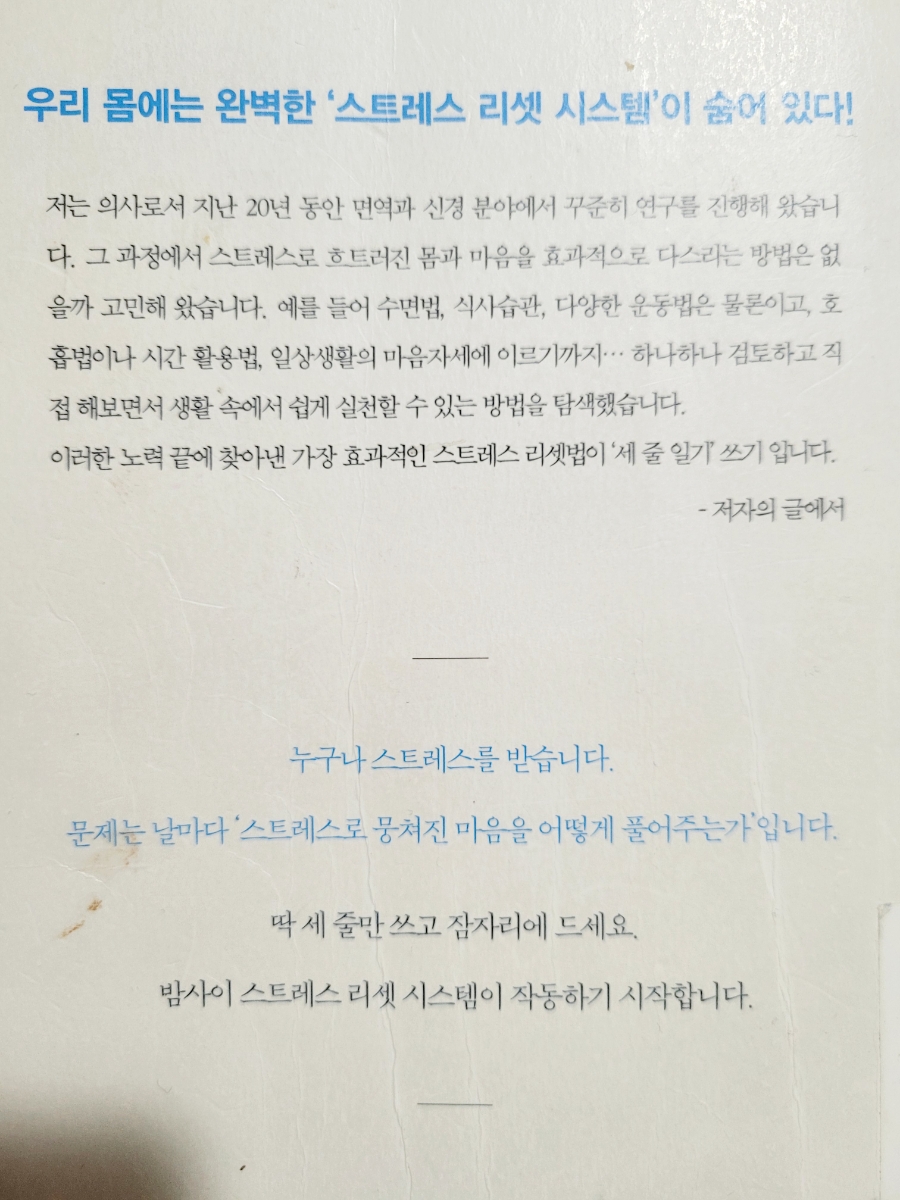 우리 몸에는 완벽한 ‘스트레스 리셋 시스템’이 숨어 있다!
저는 의사로서 지난 20년 동안 면역과 신경 분야에서 꾸준히 연구를 진행해 왔습니
다. 그 과정에서 스트레스로 흐트러진 몸과 마음을 효과적으로 다스리는 방법은 없
을까 고민해 왔습니다. 예를 들어 수면법, 식사습관, 다양한 운동법은 물론이고, 호
흡법이나 시간 활용법, 일상생활의 마음자세에 이르기까지… 하나하나 검토하고 직
접 해보면서 생활 속에서 쉽게 실천할 수 있는 방법을 탐색했습니다.
이러한 노력 끝에 찾아낸 가장 효과적인 스트레스 리셋법이 ‘세 줄 일기’ 쓰기 입니다.
- 저자의 글에서
누구나 스트레스를 받습니다.
문제는 날마다 ‘스트레스로 뭉쳐진 마음을 어떻게 풀어주는가’입니다.
딱 세 줄만 쓰고 잠자리에 드세요.
밤사이 스트레스 리셋 시스템이 작동하기 시작합니다.